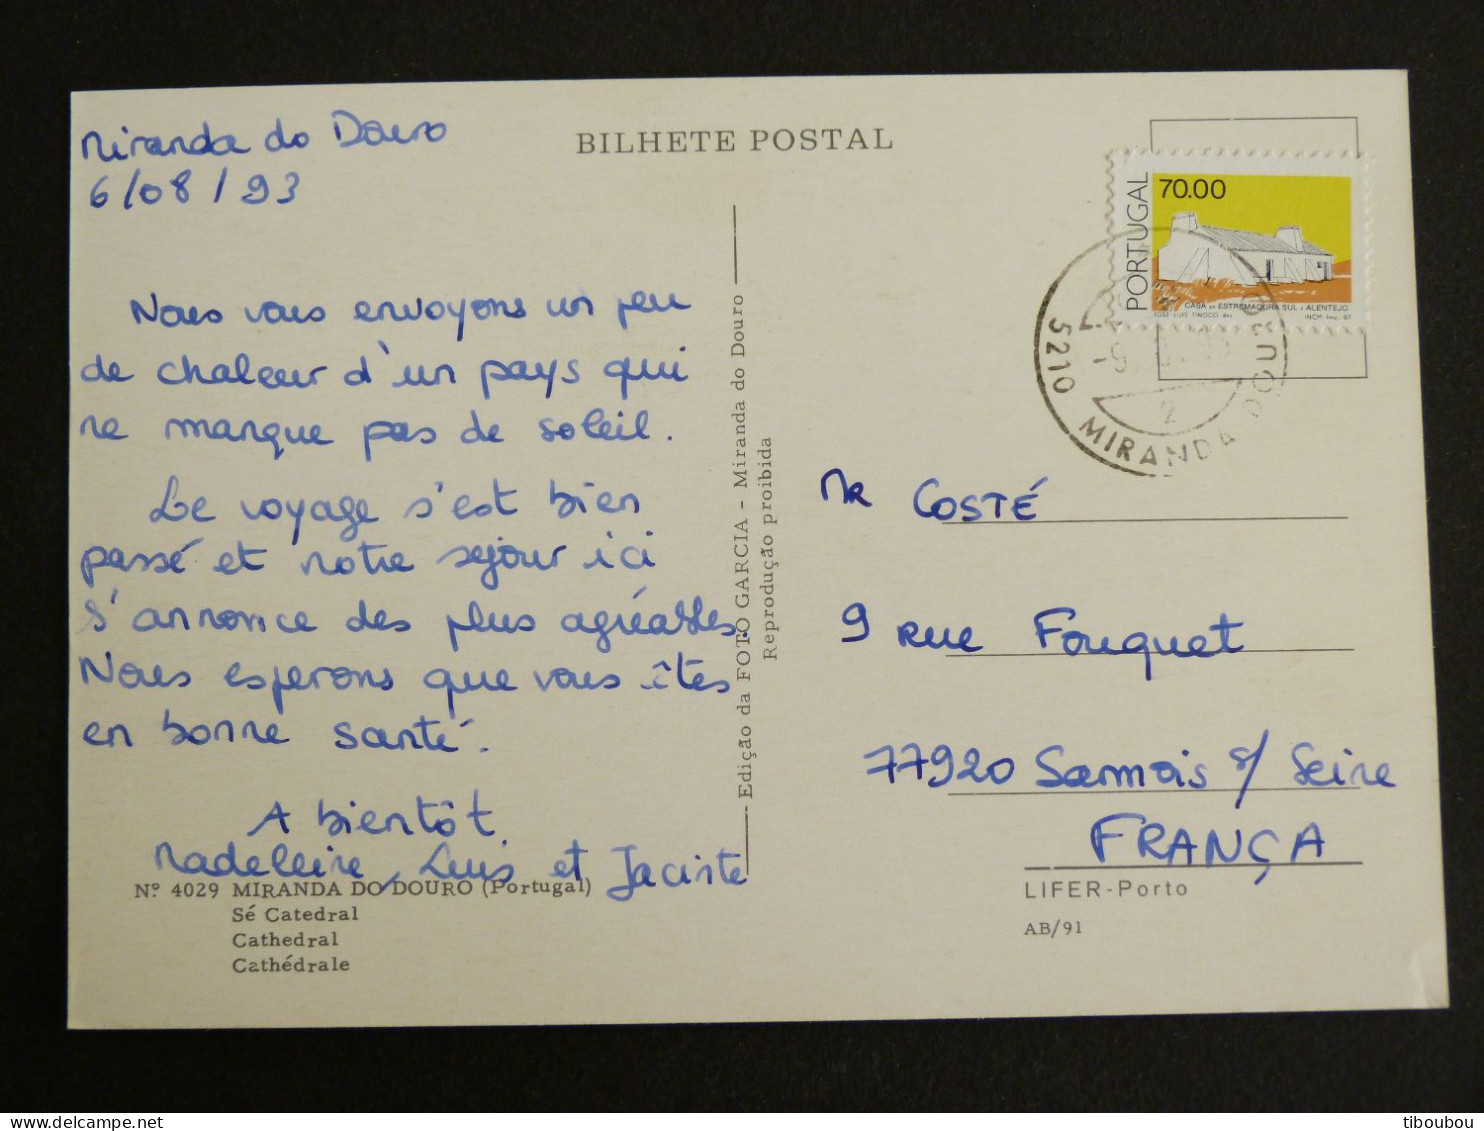 Miranda do Douro
6/08/93
Nous vous envoyons un peu
de chaleur d'un pays qui
ne manque pas de soleil.
Le voyage s'est bien
passé et notre sejour ici
s'annonce des plus agréables.
Nous esperons que vous êtes
en bonne santé.
A bientôt
Madeleine, Luis et Jacinte
Nº 4029 MIRANDA DO DOURO (Portugal)
Sé Catedral
Cathedral
Cathédrale
BILHETE POSTAL
Edição da FOTO GARCIA - Miranda do Douro
Reprodução proibida
PORTUGAL
70.00
CASA DA ESTREMADURA SUL E ALENTEJO
JOSÉ LUIS TINOCO des. INCM Imp. 87
5210 MIRANDA DO DOURO
2
Mr COSTÉ
9 rue Fouquet
77920 Samois s/ Seine
FRANÇA
LIFER-Porto
AB/91
tiboubou